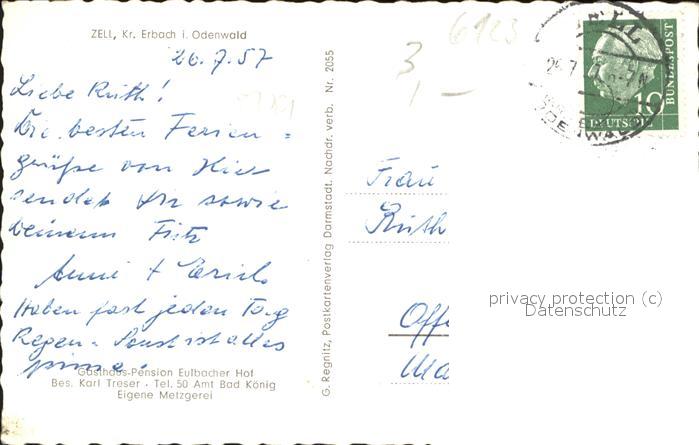 ZELL, Kr. Erbach i. Odenwald
26.7.57
Liebe Ruth!
Die besten Ferien =
grüße von Hier
sendet Dir sowie
Deinem Fritz
Anni + Erich
Haben fast jeden Tag
Regen. Sonst ist alles
prima.
Gasthaus-Pension Eulbacher Hof
Bes. Karl Treser · Tel. 50 Amt Bad König
Eigene Metzgerei
G. Regnitz, Postkartenverlag Darmstadt. Nachdr. verb. Nr. 2055
3,-
6123
ZELL
10
DEUTSCHE
BUNDESPOST
Frau
Ruth
Offe
Ma
privacy protection (c)
Datenschutz